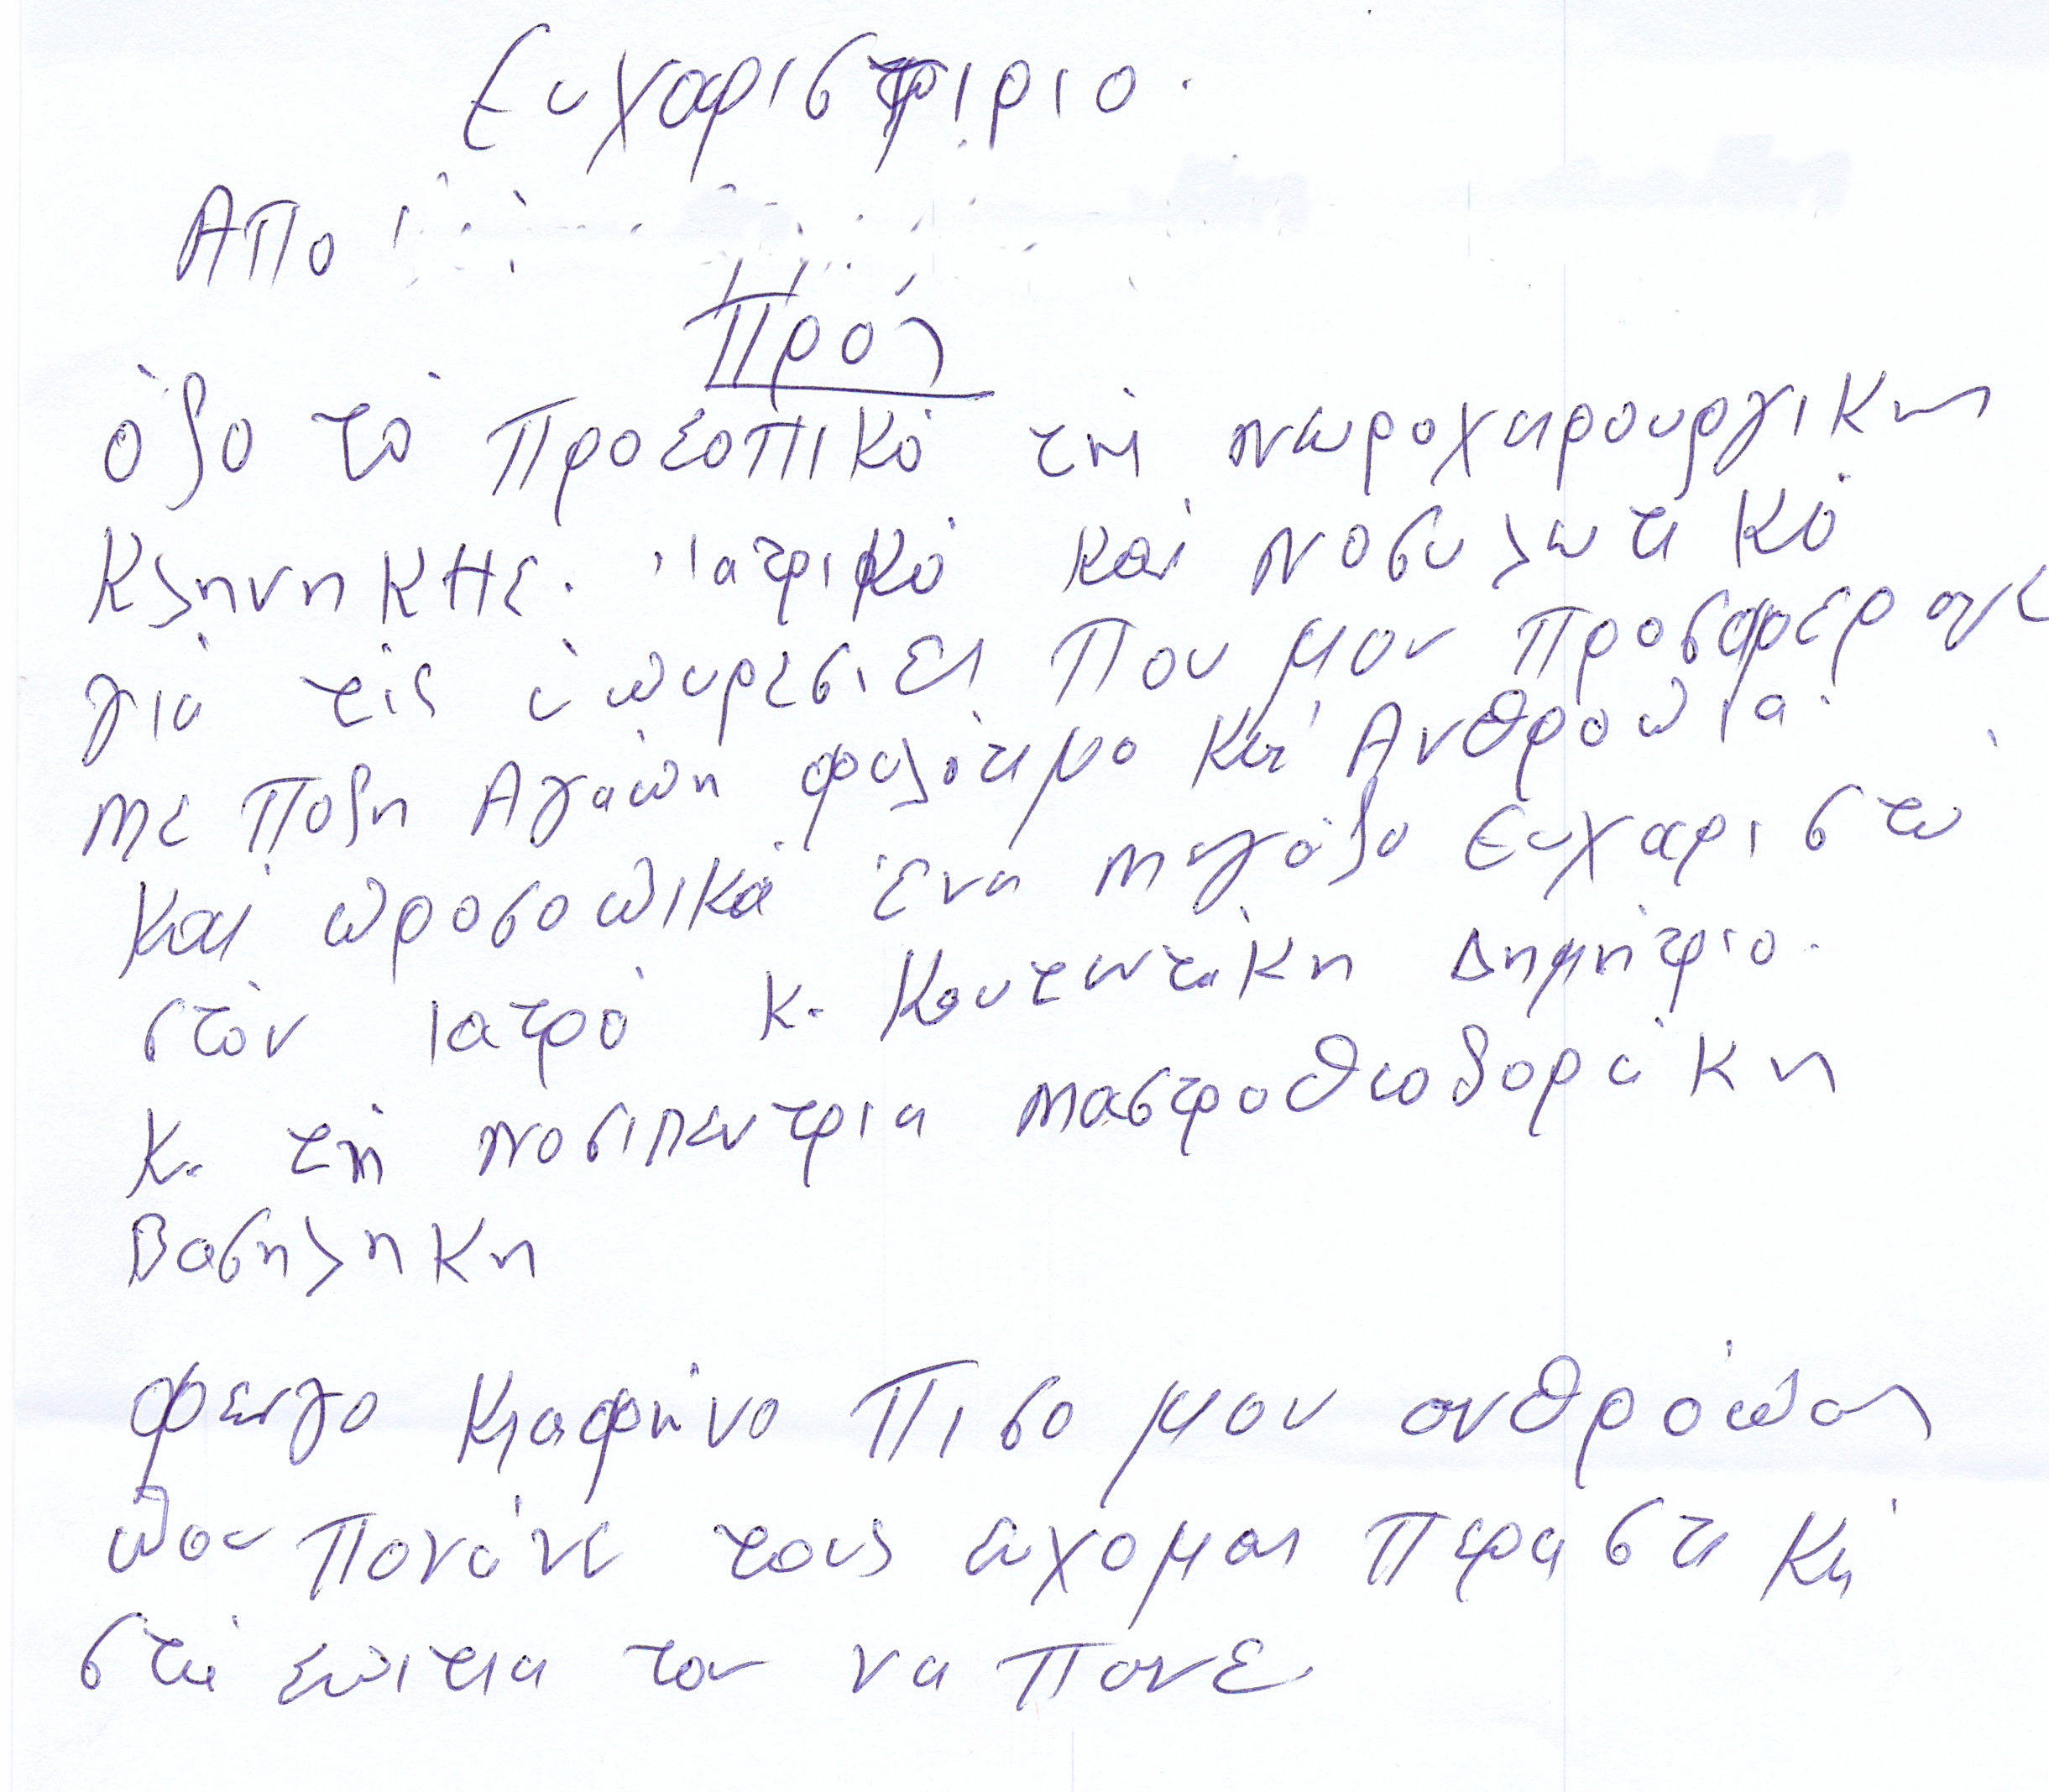 Ευχαριστιριο.
Απο
Προς
όλο τό Προσοπικό τής νευροχειρουργικης
ΚληνηΚΗς. ιατρικό και Νοσυλευτικό
γιά τίς ύπυρεσιες Που μου Προσφεραγε
με Πολη Αγάπη φυλότιμο και Ανθροπια.
και προσοπικά ένα μεγάλο Ευχαριστω
στόν Ιατρό κ. Δημήτριο.
Κ. τη νοσιλεντρια μαστροθεοδοράκη
Βασηληκη
φευγο κιαφήνο Πισο μου ανθρόπους
που Πονάνε τους ευχομαι Περαστικα
στά σπιτια του να Πανε